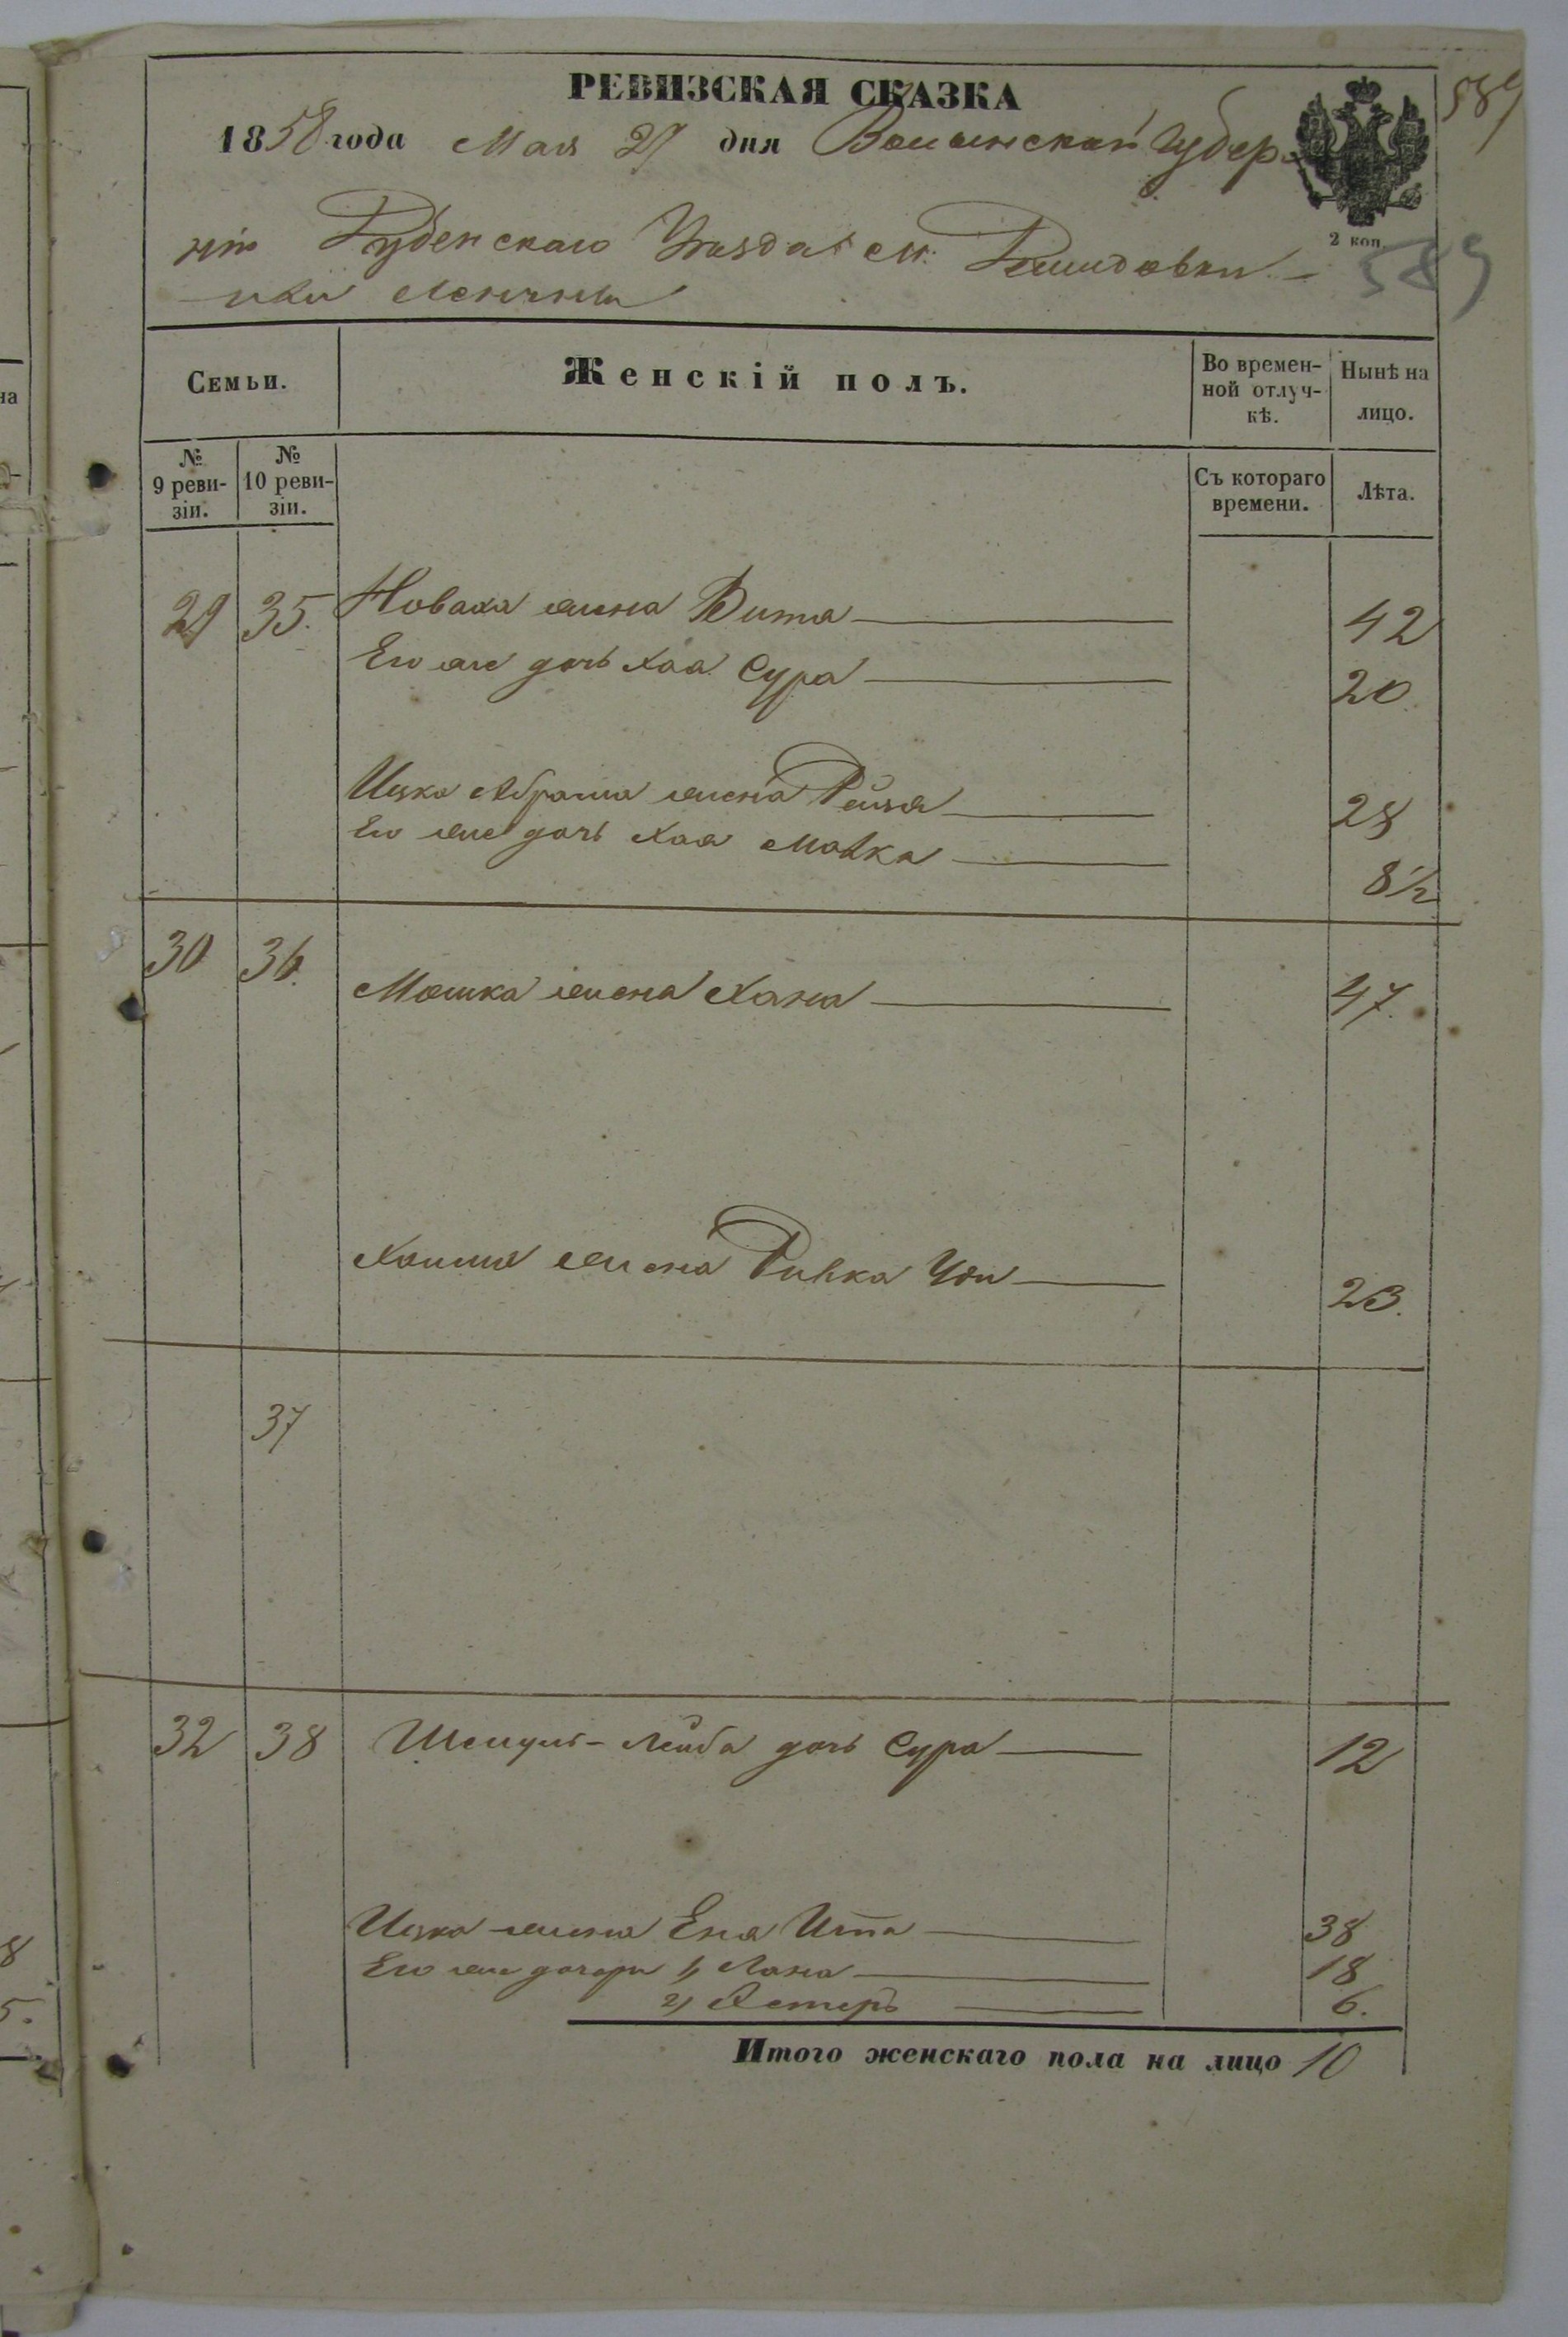 РЕВИЗСКАЯ СКАЗКА
589
1858 года Мая 27 дня Волынской Губер-
2 коп.
ніи Дубенскаго Уѣзда м. Демидовки
589
Семьи.
Женскій полъ.
Во времен-
ной отлуч-
кѣ.
Нынѣ на
лицо.
№
9 реви-
зіи.
№
10 реви-
зіи.
Съ котораго
времени.
Лѣта.
29 35. Новаха жена Вита 42
Его же дочь Хая Сура 20.
Ицка Абрама жена Рейзя 28
Его же дочь Хая Малка 8½
30 36. Мошка жена Хана 47.
Хаима жена Ривка 23.
37
32 38 Шмуль-Лейба дочь Сура 12
Ицка жена Ена Итта 38
Его же дочери 1, Хана 18
2, Эстеръ 6.
Итого женскаго пола на лицо 10